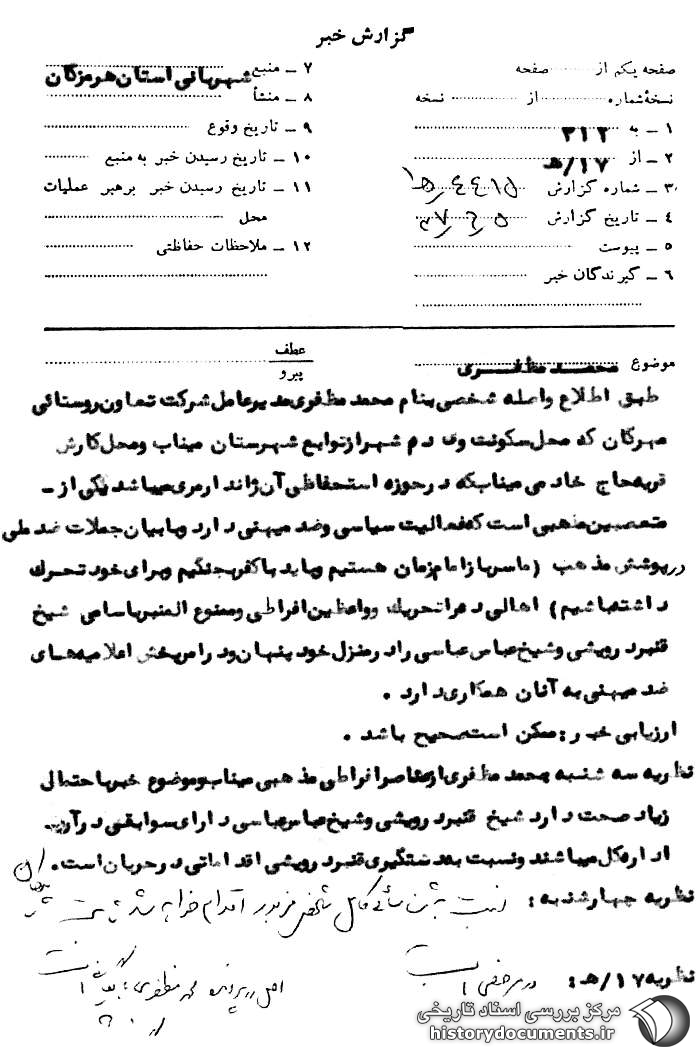 گزارش خبر
صفحه یکم از ............ صفحه
نسخهٔ شماره ............ از ............ نسخه
۱ ـ به ۳۱۲
۲ ـ از ۱۷/هـ
۳ ـ شماره گزارش ۴۴۱۵/ ۱۵هـ
۴ ـ تاریخ گزارش
۵ ـ پیوست
۶ ـ گیرندگان خبر
۷ ـ منبع شهربانی استان هرمزگان
۸ ـ منشأ
۹ ـ تاریخ وقوع
۱۰ ـ تاریخ رسیدن خبر به منبع
۱۱ ـ تاریخ رسیدن خبر برهبر عملیات
محل
۱۲ ـ ملاحظات حفاظتی
موضوع محمد مظفری
عطف
پیرو
طبق اطلاع واصله شخصی بنام محمد مظفری مدیرعامل شرکت تعاون روستائی
مهرگان که محل سکونت وی دم شهر از توابع شهرستان میناب ومحل کارش
قریه حاج خادمی میناب که در حوزه استحفاظی آن ژاندارمری میباشد یکی از -
متعصبین مذهبی است که فعالیت سیاسی وضد میهنی دارد وبا بیان جملات ضد ملی
در پوشش مذهب (ما سرباز امام زمان هستیم وباید با کفر بجنگیم وبرای خود تحرک
داشته باشیم) اهالی دهرا تحریک وواعظین افراطی وممنوع المنبر باسامی شیخ
قنبر درویشی وشیخ عباس عباسی را در منزل خود پنهان ودر امر پخش اعلامیه های
ضد میهنی به آنان همکاری دارد .
ارزیابی خبر : ممکن است صحیح باشد .
نظریه سه شنبه محمد مظفری از عناصر افراطی مذهبی میناب وموضوع خبر باحتمال
زیاد صحت دارد شیخ قنبر درویشی وشیخ عباس عباسی دارای سوابقی در آن
اداره کل میباشند ونسبت به دستگیری قنبر درویشی اقداماتی در جریان است .
نظریه چهارشنبه : نسبت به شناسائی کامل شخص مزبور اقدام خواهد شد
نظریه ۱۷/هـ : در مرخصی است
اصل در پرونده محمد مظفری بایگانی است
مرکز بررسی اسناد تاریخی
historydocuments.ir